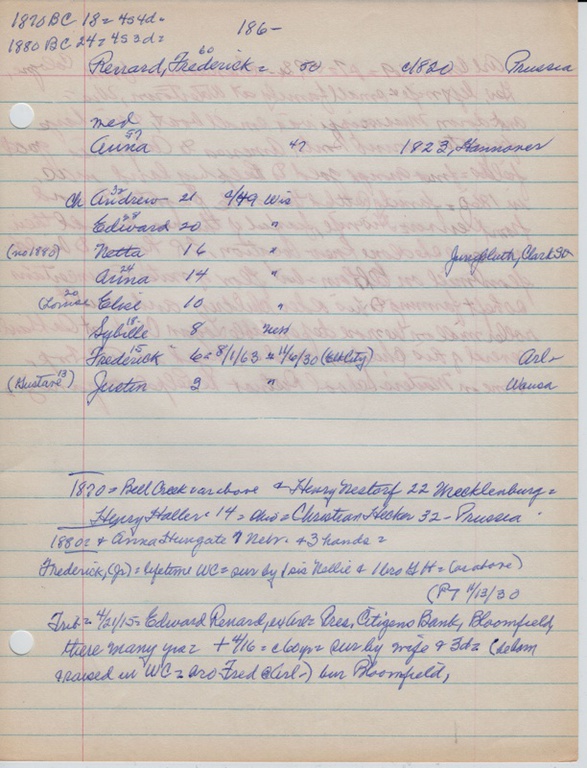 1870 BC 18 = 4s 4d =
1880 BC 24 = 4s 3d =
186-
Renard, Frederick = 60 50 c1820 Prussia
med
Anna 57 47 1823, Hannover
ch Andrew 32 21 c/49 Wis
Edward 28 20 "
(no 1880) Netta 16 " Jungbluth, Clark SD
Anna 24 14 "
(Louise 20 Elise 10 "
Sybille 18 8 Neb
Frederick 15 6 = 8/1/63 = 4/6/30 (Elk City) Arl-
(Gustave 13) Justin 3 " Wausa
1870 = Bell Creek = as above & Henry Nestorf 22 Mecklenburg =
Henry Haller 14 = Ohio = Christian Hecker 32 - Prussia
1880 = & Anna Hungate 9 Nebr. & 3 hands =
Frederick, (Jr) = lifetime WC = sur by 1 sis Nellie & 1 bro G H = (as above)
(PT 4/13/30
Trib = 4/21/15 = Edward Renard, ex Arl = Pres, Citizens Bank, Bloomfield,
there many yrs = + 4/16 = c60yr = sur by wife & 3d = (
& raised in WC = bro Fred @ Arl-) bur Bloomfield,